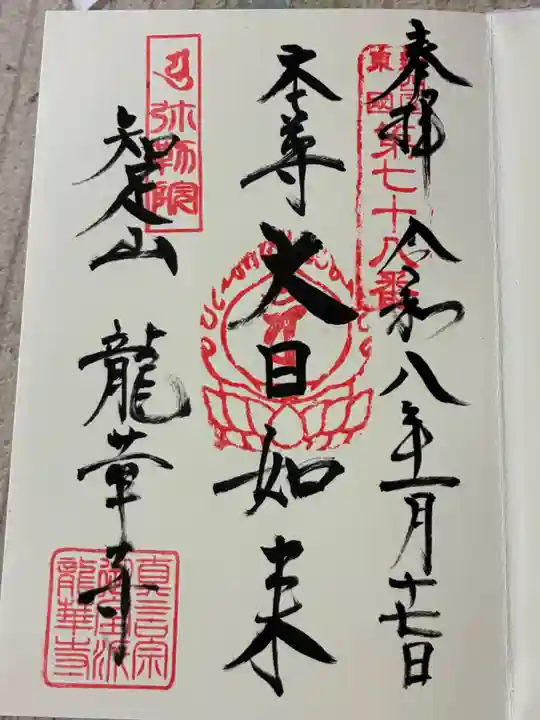 奉拝 令和八年一月十七日
東國
第七十八番
本尊 大日如来
弥勒院
知足山 龍華寺
真言宗
御室派
龍華寺